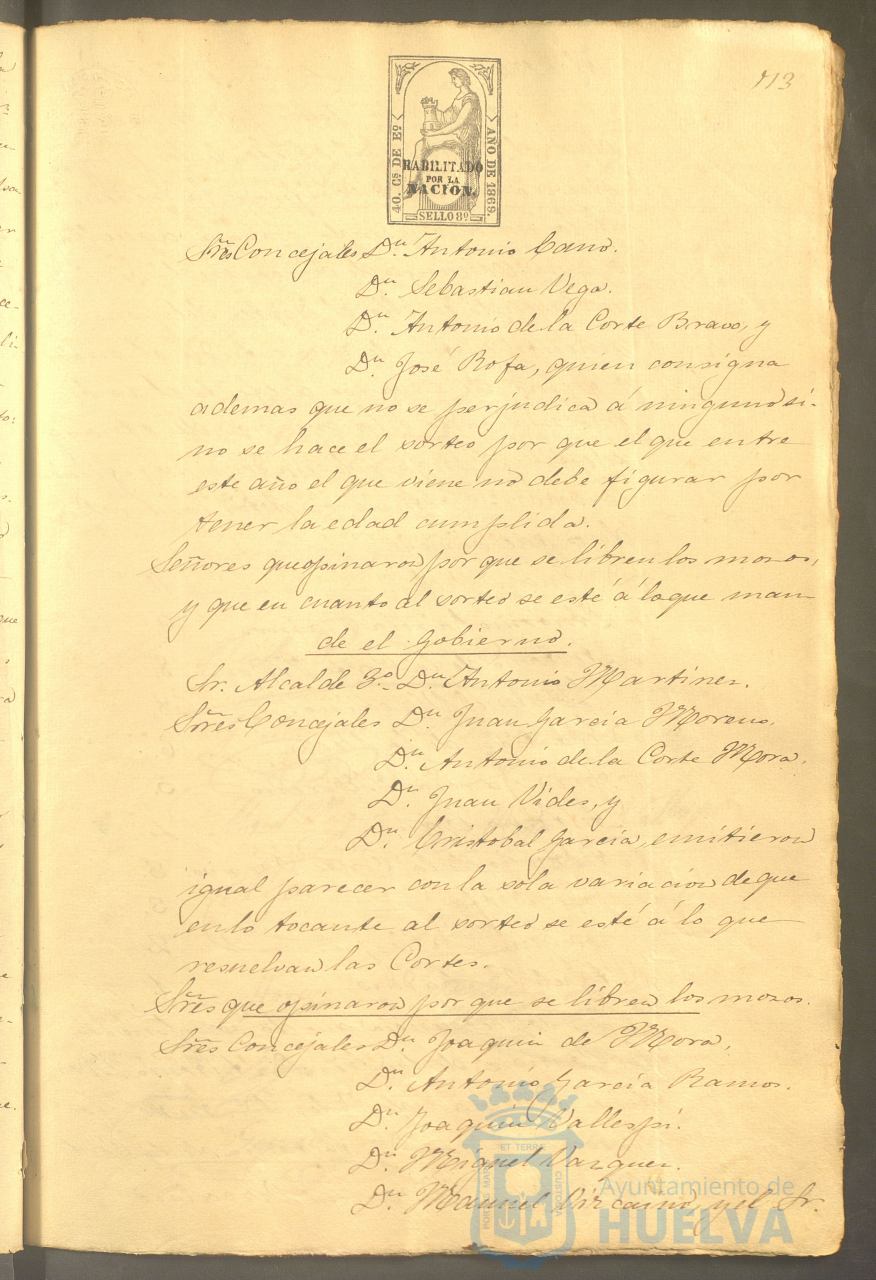 113
40. Cs DE Eo
AÑO DE 1869.
HABILITADO
POR LA
NACION.
SELLO 8º
Sres Concejales Dn. Antonio Cano.
Dn. Sebastian Vega.
Dn. Antonio de la Corte Bravo, y
Dn. José Rofa, quien consigna
ademas que no se perjudica á ninguno si-
no se hace el sorteo por que el que entre
este año el que viene no debe figurar por
tener la edad cumplida.
Señores que opinaron por que se libren los mozos,
y que en cuanto al sorteo se esté á lo que man-
de el Gobierno.
Sr. Alcalde 3º Dn. Antonio Martinez.
Sres Concejales Dn. Juan Garcia Moreno.
Dn. Antonio de la Corte Mora.
Dn. Juan Vides, y
Dn. Cristobal Garcia, emitieron
igual parecer con la sola variacion de que
en lo tocante al sorteo se esté á lo que
resuelvan las Cortes.
Sres que opinaron por que se libren los mozos.
Sres Concejales Dn. Joaquin de Mora,
Dn. Antonio Garcia Ramos.
Dn. Joaquin Vallespi.
Dn. Miguel Vazquez.
Dn. Manuel Vizcaino, y el Sr.
PORTUS MARIS
ET TERRA
CUSTODIA
Ayuntamiento de
HUELVA